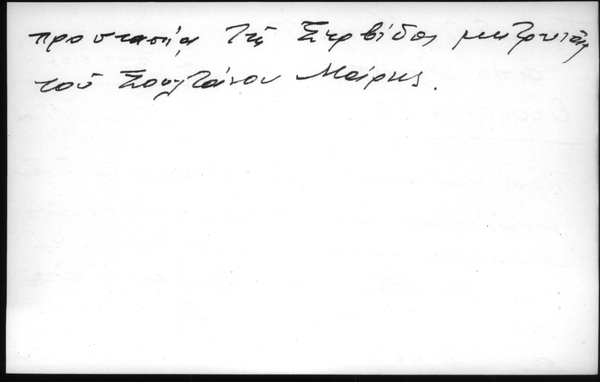 προστασία τῆς Σερβίδος μητρυιᾶς
τοῦ Σουλτάνου Μάρως.